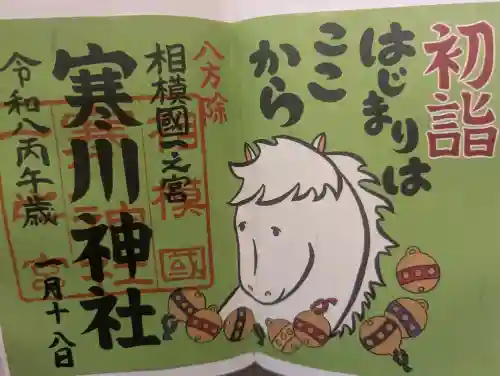 初詣
はじまりは
ここ
から
八方除
相模國一之宮
寒川神社
令和八丙午歳
一月十八日